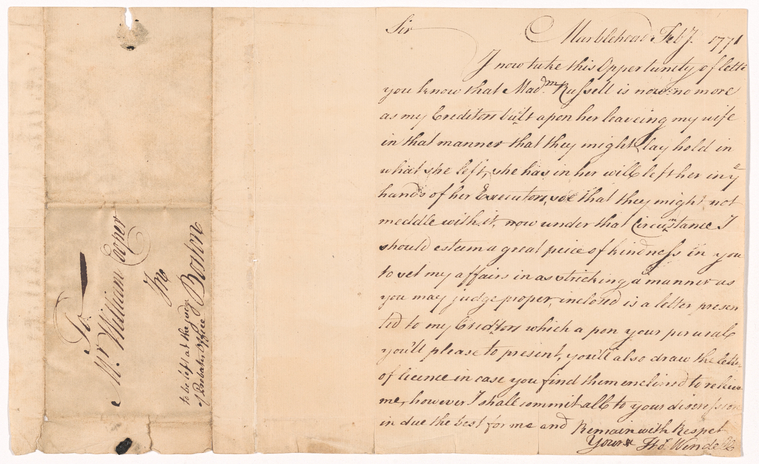 Sir Marblehead Feb 7. 1771
I now take this Opportunity of lett
you know that Madm Russell is now no more
as my Creditors built apon her leaveing my wife
in that manner that they might lay hold in
what she left, she has in her will left her in ye
hands of her Executors, soe that they might not
meddle with it. now under that Circumstance I
should esteem a great peice of kindness in you
to set my affairs in as striching a manner as
you may judge proper, inclosed is a letter presen
ted to my Creditors which a pon your perusals
you'll please to present, you'll also draw the lette
of licence in case you find them enclined to releive
me, however I shall commit all to your discression
in due the best for me and Remain with Respet
Yours Jno. Windell
To
Mr. William Cooper
In
Boston
to be left at the judge
of Probate Office